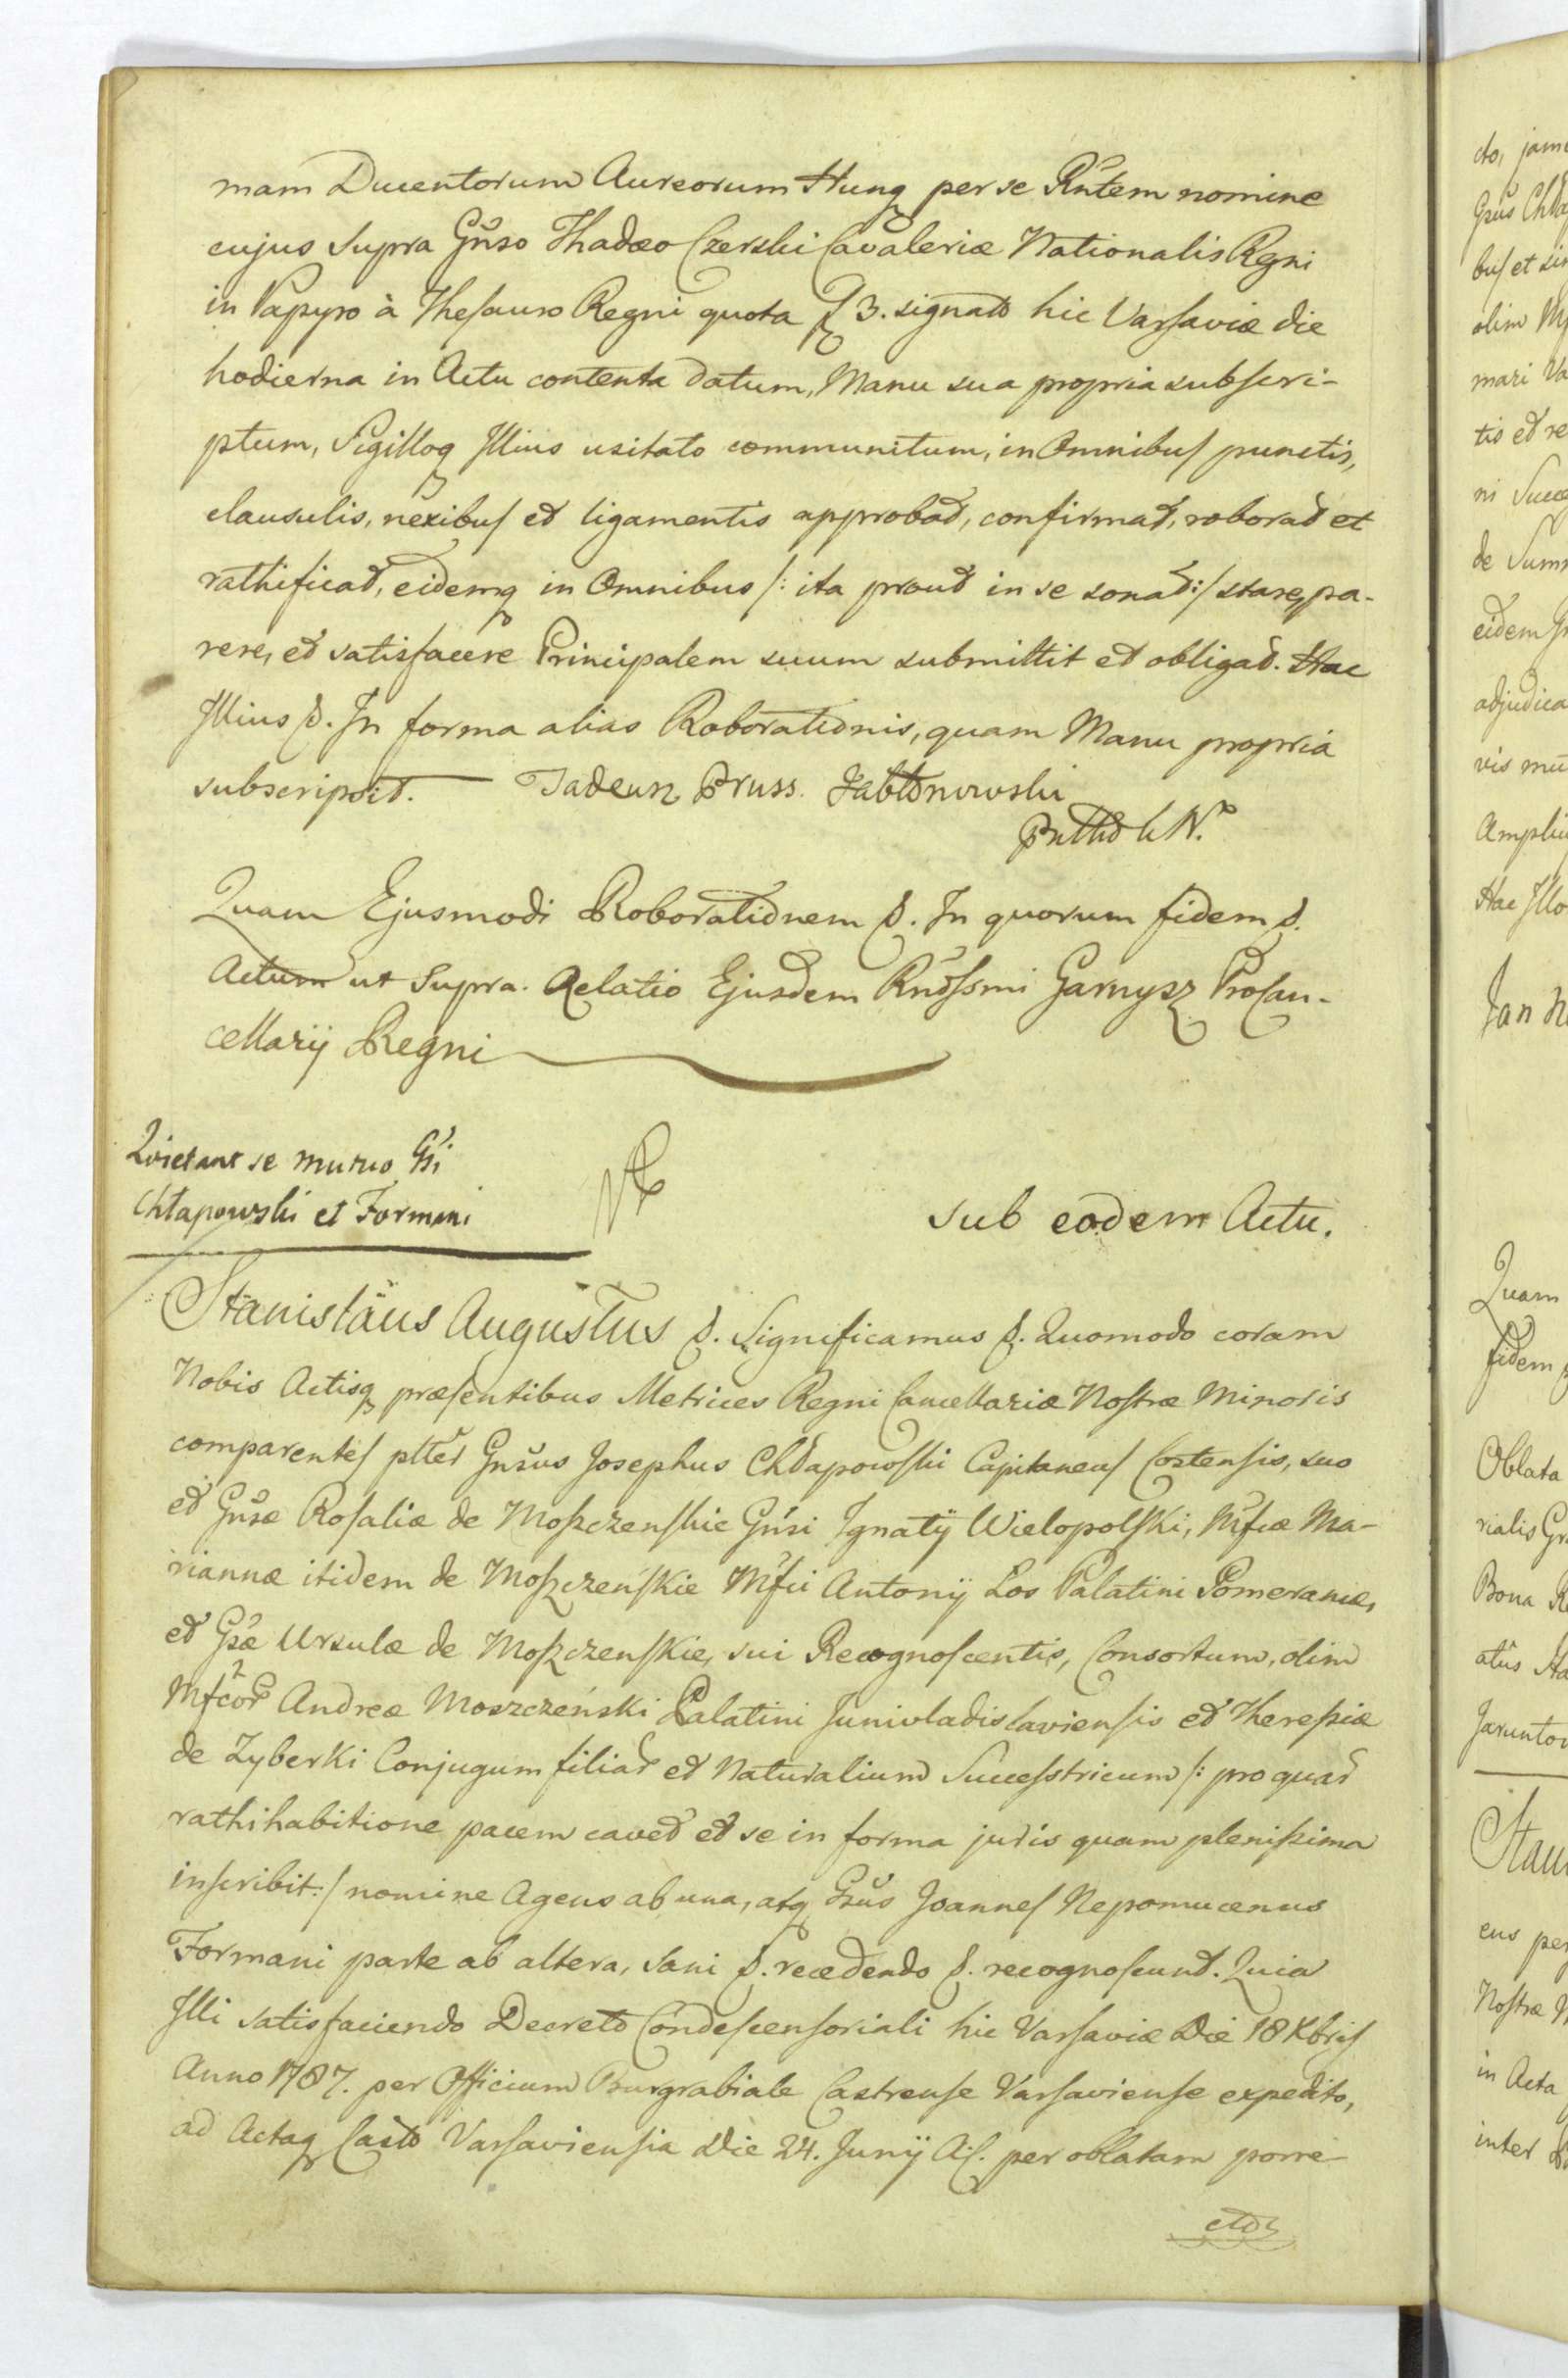 mam Ducentorum Aureorum Hungq per se Rntem nomine
cujus supra Gnso Thadæo Czerski Cavaleriæ Nationalis Regni
in Papyro à Thesauro Regni quota 3. signato hic Varsaviæ die
hodierna in Actu contenta datum, Manu sua propria subscri-
ptum, Sigilloq Illius usitato communitum, in Omnibus punctis,
clausulis, nexibus et ligamentis approbat, confirmat, roborat et
rathificat, eidemq in Omnibus /: ita prout in se sonat :/ stare, pa-
rere, et satisfacere Principalem suum submittit et obligat. Hac
Illius &. In forma alias Roborationis, quam Manu propria
subscripsit. — Tadeusz Pruss. Jabłonowski
Quam Ejusmodi Roborationem &. In quorum fidem &.
Actum ut Supra. Relatio Ejusdem Rndssmi Garnysz ProCan-
cellarij Regni
Quietant se mutuo Gsi
Chłapowski et Formani
Sub eodem Actu.
Stanisläus Augustus &. Significamus &. Quomodo coram
Nobis Actisq præsentibus Metrices Regni Cancellariæ Nostræ Minoris
comparentes pltter Gnsus Josephus Chłapowski Capitaneus Costensis, suo
et Gnsæ Rosaliæ de Moszczenskie Gnsi Ignatij Wielopolski, Mfcæ Ma-
riannæ itidem de Moszczeńskie Mfci Antonij Los Palatini Pomeraniæ,
et Gsæ Ursulæ de Moszczenskie, sui Recognoscentis, Consortum, olim
Mfcor Andreæ Moszczeński Palatini Junivladislaviensis et Theresiæ
de Zyberki Conjugum filiar et Naturalium Successtricum /: pro quar
rathihabitione pacem cavet et se in forma juris quam plenissima
inscribit :/ nomine Agens ab una, atq Gsus Joannes Nepomucenus
Formani parte ab altera, sani &. recedendo &. recognoscunt. Quia
Illi satisfaciendo Decreto Condescensoriali hic Varsaviæ Die 18 Xbris
Anno 1787. per Officium Burgrabiale Castrense Varsaviense expedito,
ad Actaq Casto Varsaviensia Die 24. Junij A.C. per oblatam porre-
cto,
cto, jam
Gsus Chła
bus et si
olim
mari Va
tis et re
ni Succe
de Sum
eidem
adjudica
vis mu
Ampli
Hac Illo
Jan N
Quam
fidem
Oblata
rialis
Bona R
atus
Jarunto
Stani
ens per
Nostræ
in Acta
inter